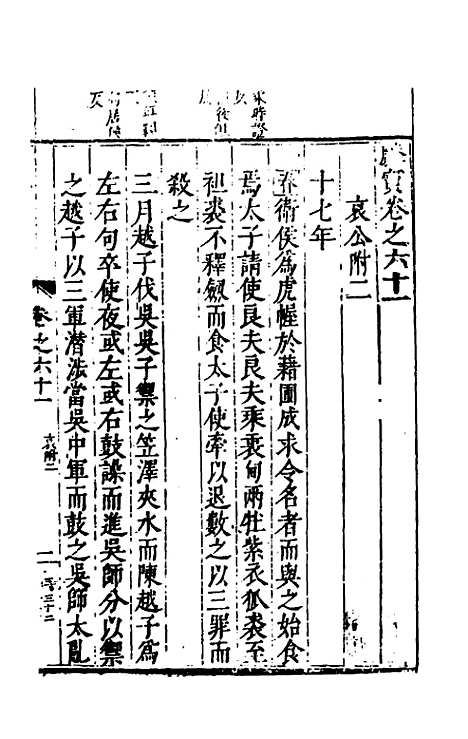 寶卷之六十一
哀公附二
十七年
春衛侯為虎幄於藉圃成求令名者而與之始食
焉太子請使良夫良夫乘衷甸兩牡紫衣狐裘至
袒裘不釋劒而食太子使牽以退數之以三罪而
殺之
三月越子伐吳吳子禦之笠澤夾水而陳越子為
左右句卒使夜或左或右鼓譟而進吳師分以禦
之越子以三軍潛涉當吳中軍而鼓之吳師大亂
卷之六十一
哀附二